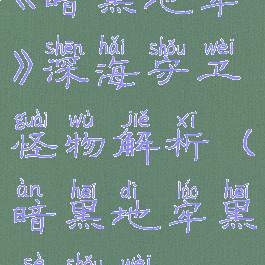 《暗黑地牢
shēn hǎi shǒu wèi
》深海守卫
guài wù jiě xī
怪物解析（
àn hēi dì láo hēi
暗黑地牢黑
sè shǒu wèi